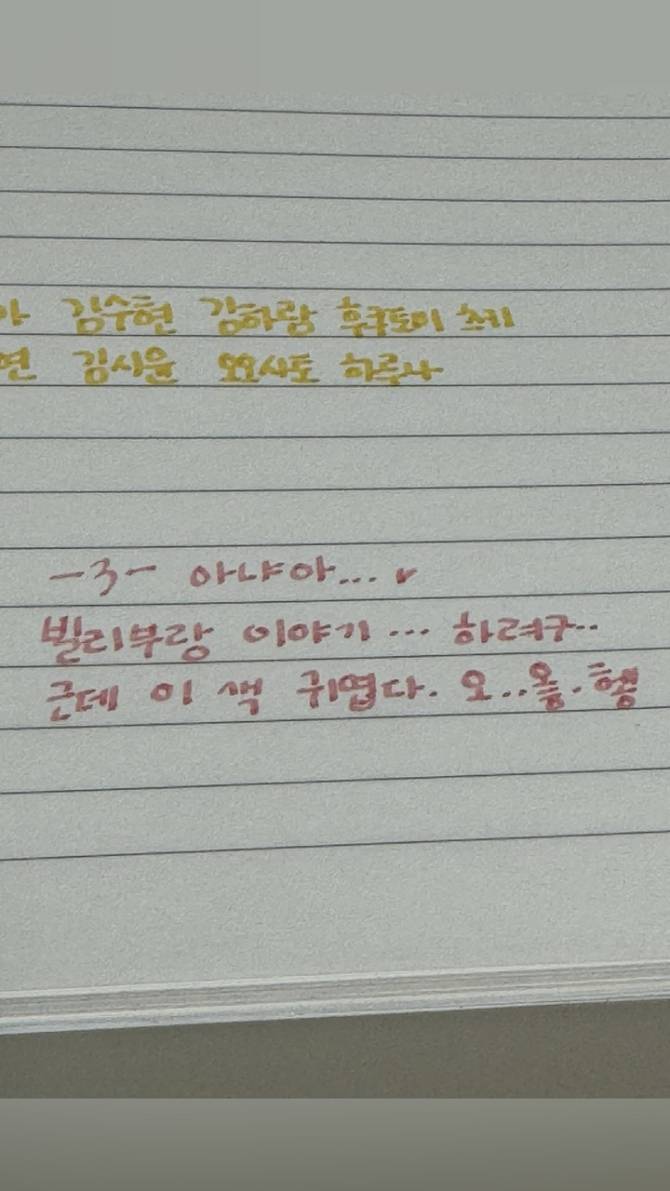 아 김수현 김하람 후쿠토미 츠키
연 김시윤 오오사토 하루나
-3- 아냐아... ♥
빌리부랑 이야기... 하려구..
근데 이 색 귀엽다. 오..옹.헹